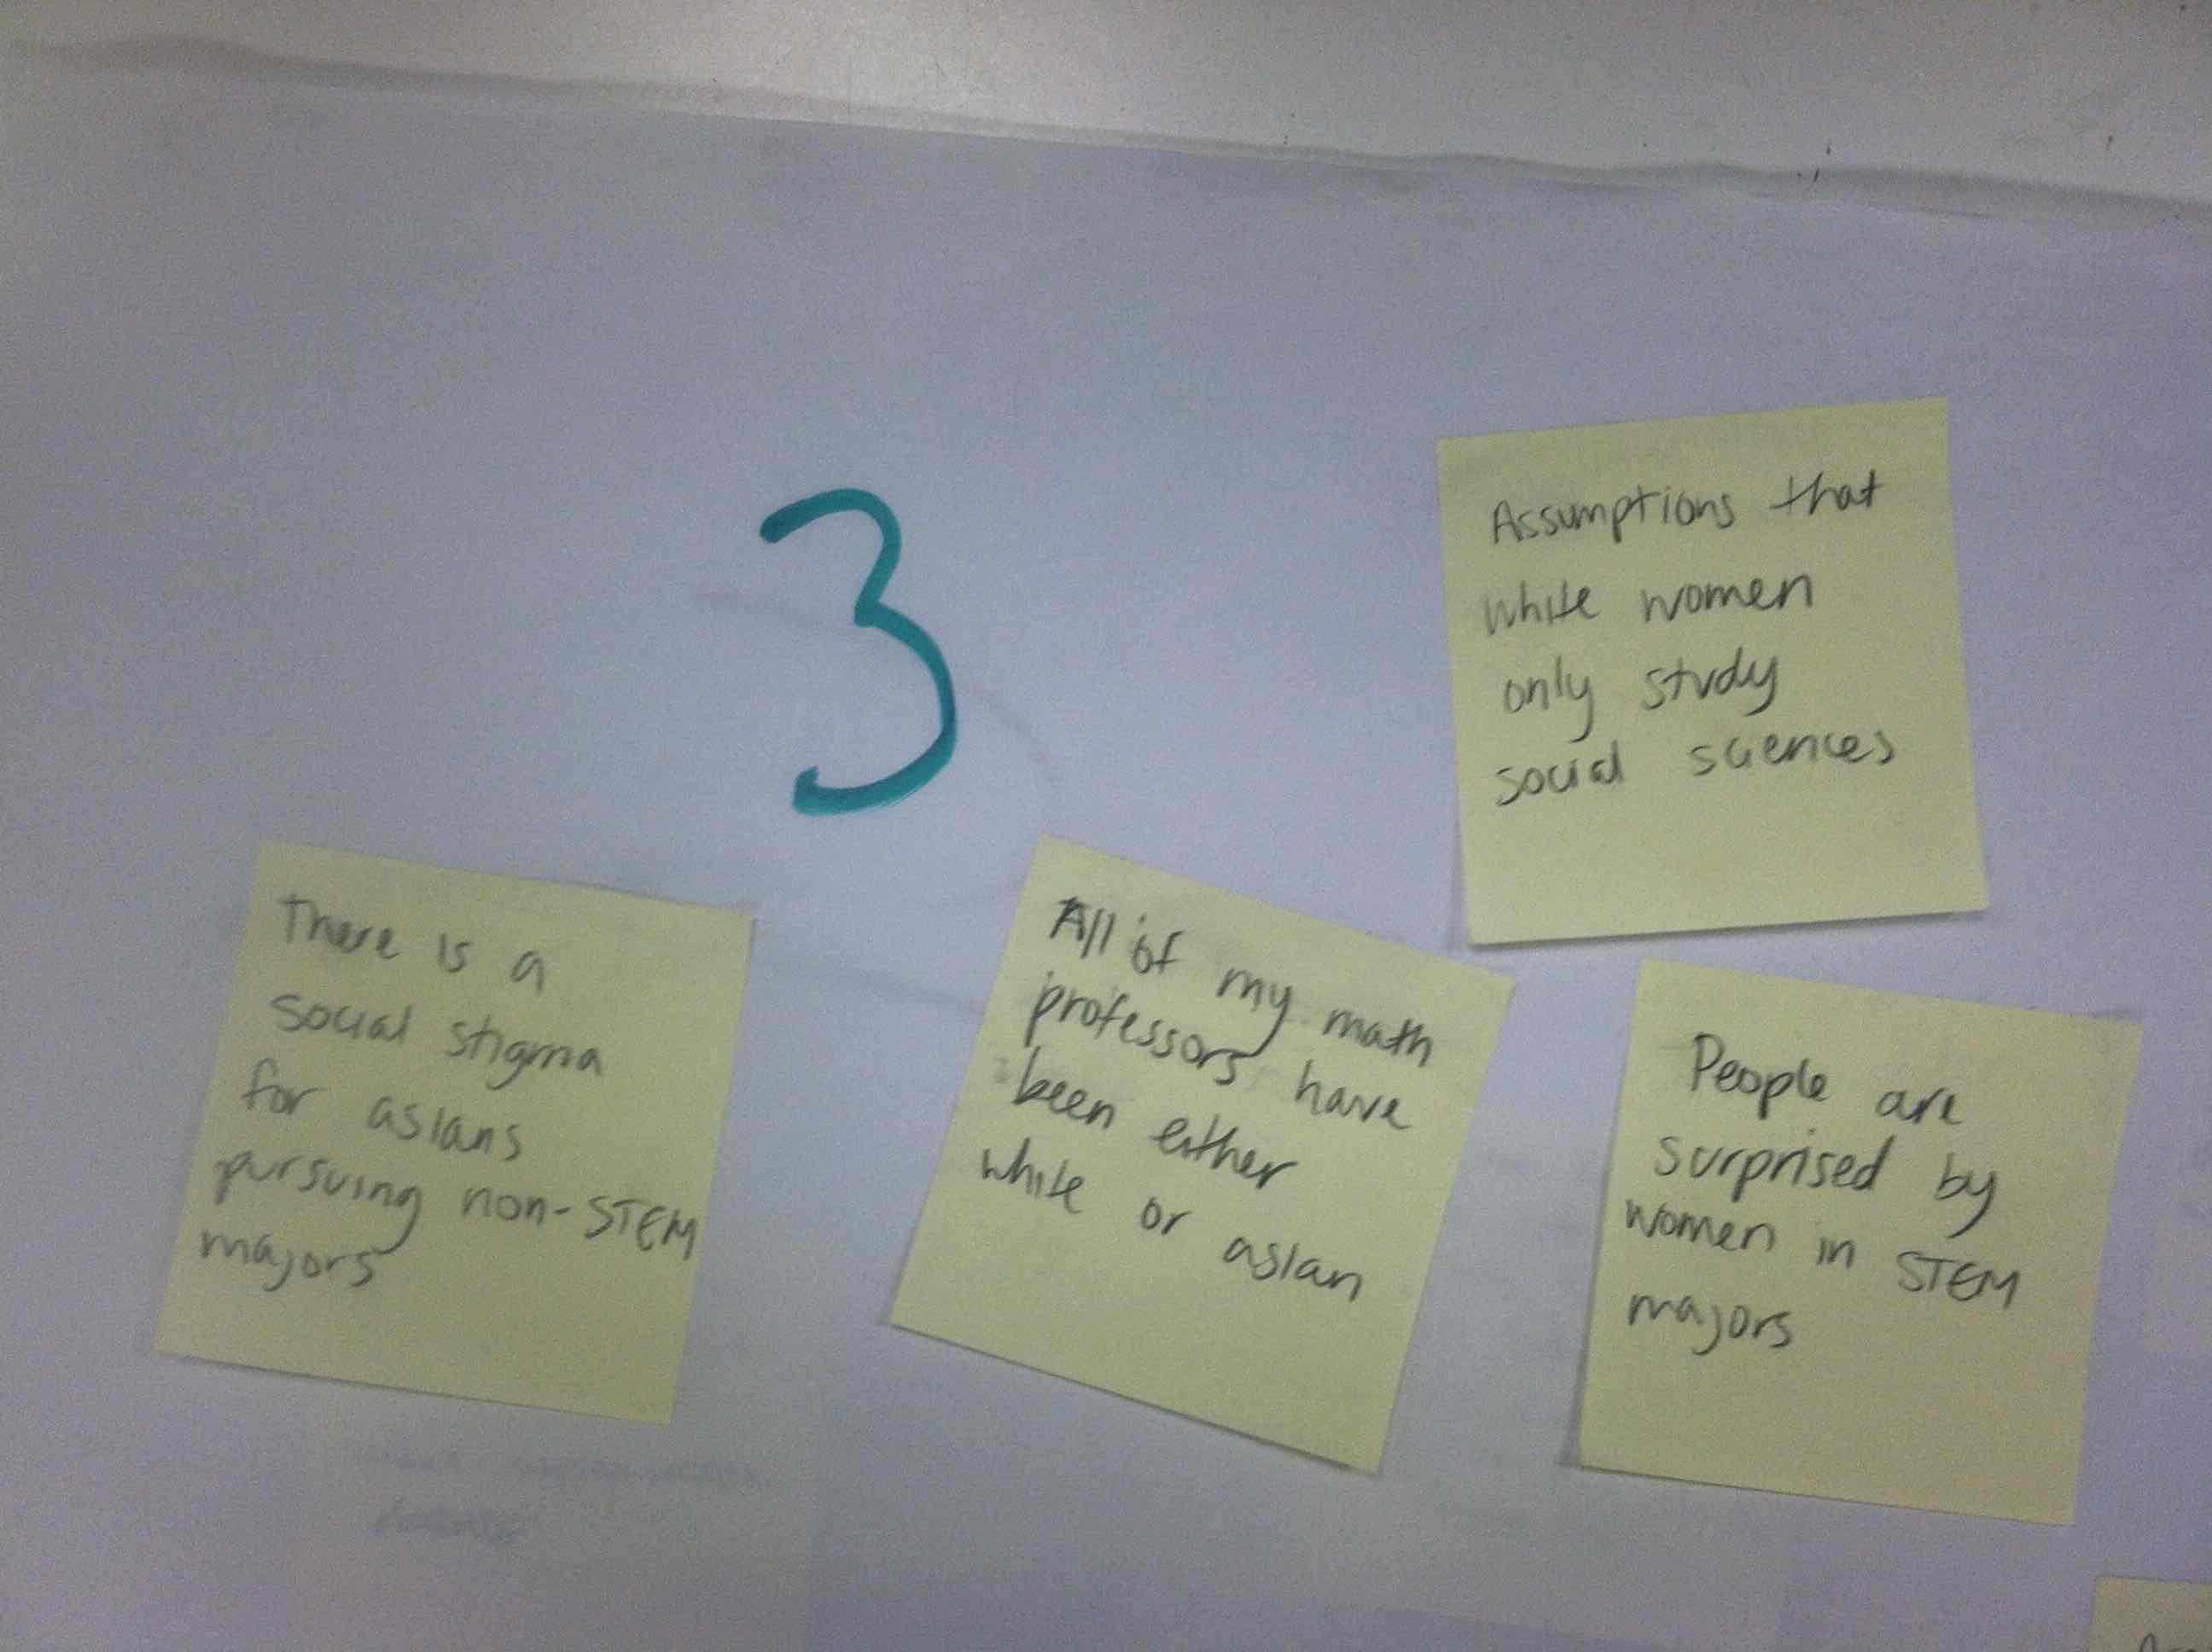 3
Assumptions that
white women
only study
social sciences
There is a
social stigma
for asians
pursuing non-STEM
majors
All of my math
professors have
been either
white or asian
People are
surprised by
women in STEM
majors